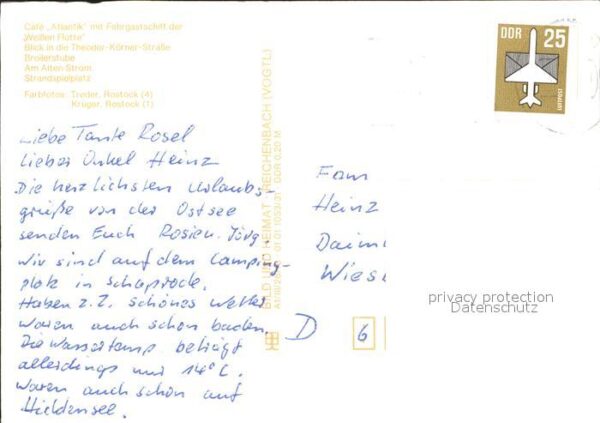 Café „Atlantik" mit Fahrgastschiff der
„Weißen Flotte"
Blick in die Theodor-Körner-Straße
Broilerstube
Am Alten Strom
Strandspielplatz
Farbfotos: Treder, Rostock (4)
Krüger, Rostock (1)
DDR 25
LUFTPOST
Liebe Tante Rosel
Lieber Onkel Heinz
Die herzlichsten Urlaubs-
grüße von der Ostsee
senden Euch Jörg.
Wir sind auf dem Camping-
platz in Schaprode.
Haben z.Z. schönes Wetter
Waren auch schon baden.
Die Wassertemp beträgt
allerdings nur 14°C.
Waren auch schon auf
Hiddensee.
BILD UND HEIMAT REICHENBACH (VOGTL)
Fam
Heinz
Daiml
Wies
D 6
privacy protection
Datenschutz